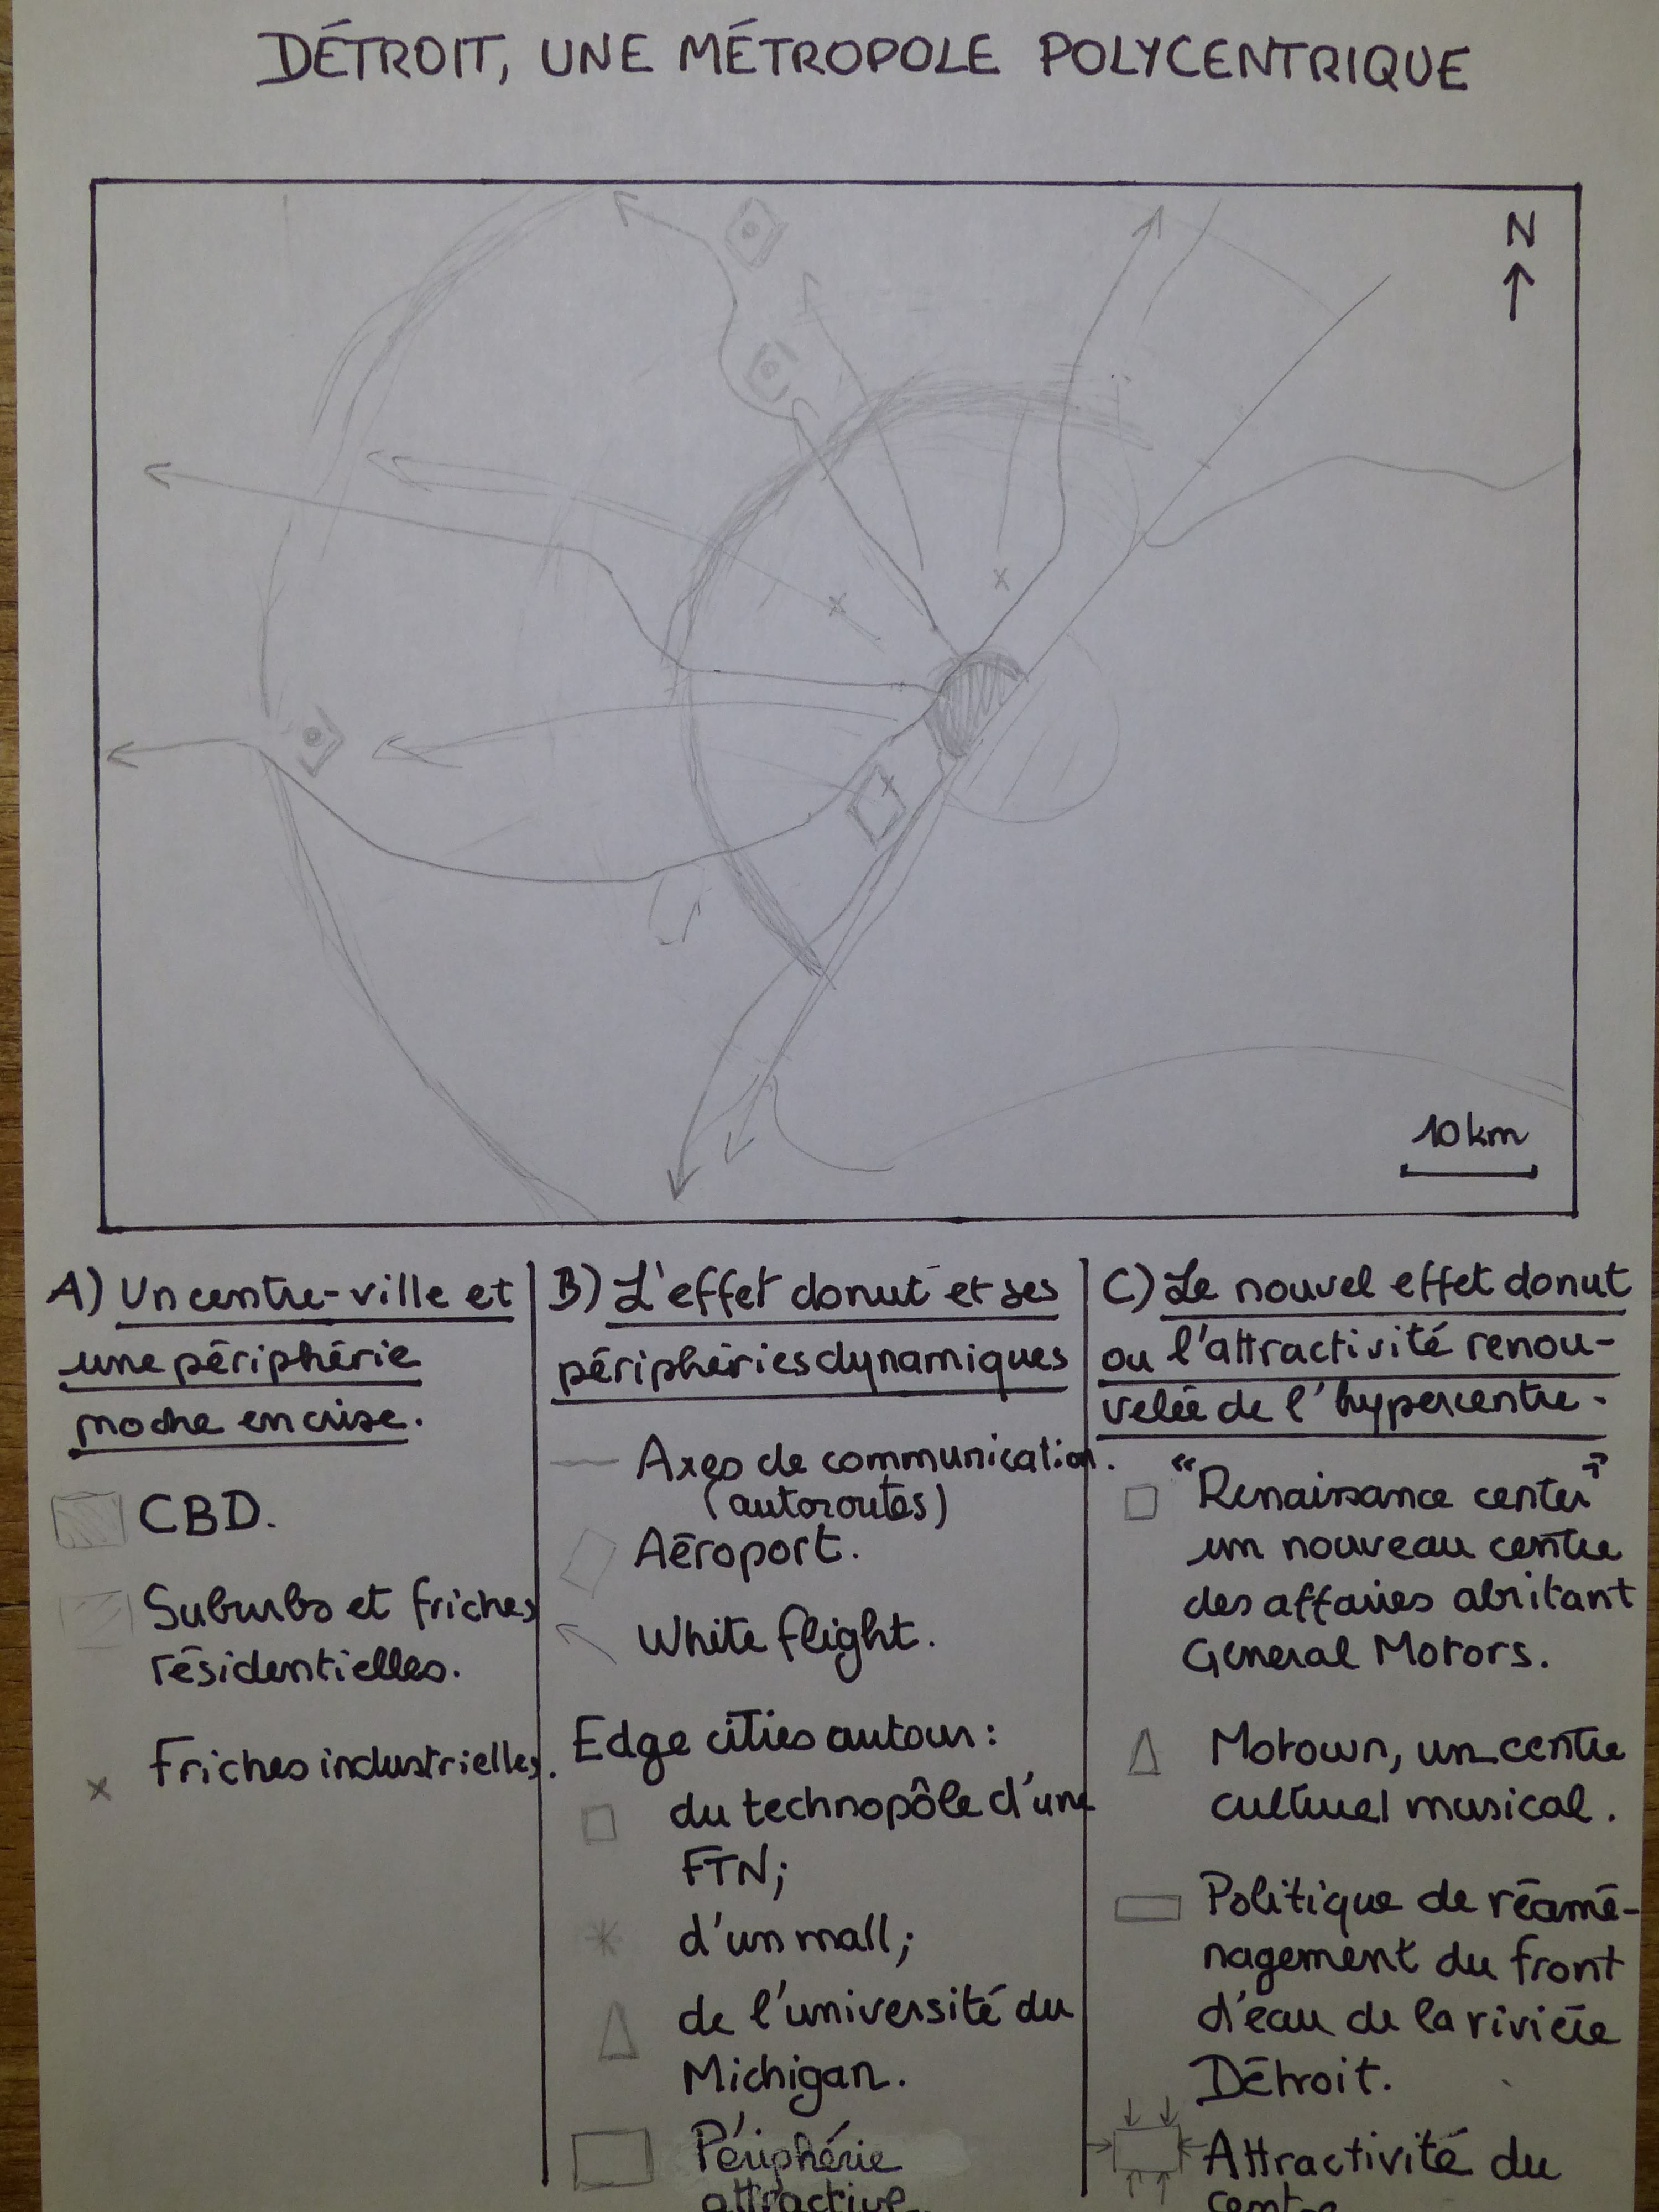 DÉTROIT, UNE MÉTROPOLE POLYCENTRIQUE
N
10 km
A) Un centre-ville et
une périphérie
proche en crise.
CBD.
Suburbs et friches
résidentielles.
Friches industrielles.
B) L'effet donut et ses
périphéries dynamiques
Axes de communication.
(autoroutes)
Aéroport.
White flight.
Edge cities autour :
du technopôle d'une
FTN;
d'un mall;
de l'université du
Michigan.
Périphérie
attractive
C) Le nouvel effet donut
ou l'attractivité renou-
velée de l'hypercentre.
"Renaissance center"
un nouveau centre
des affaires abritant
General Motors.
Motown, un centre
culturel musical.
Politique de réamé-
nagement du front
d'eau de la rivière
Détroit.
Attractivité du
centre